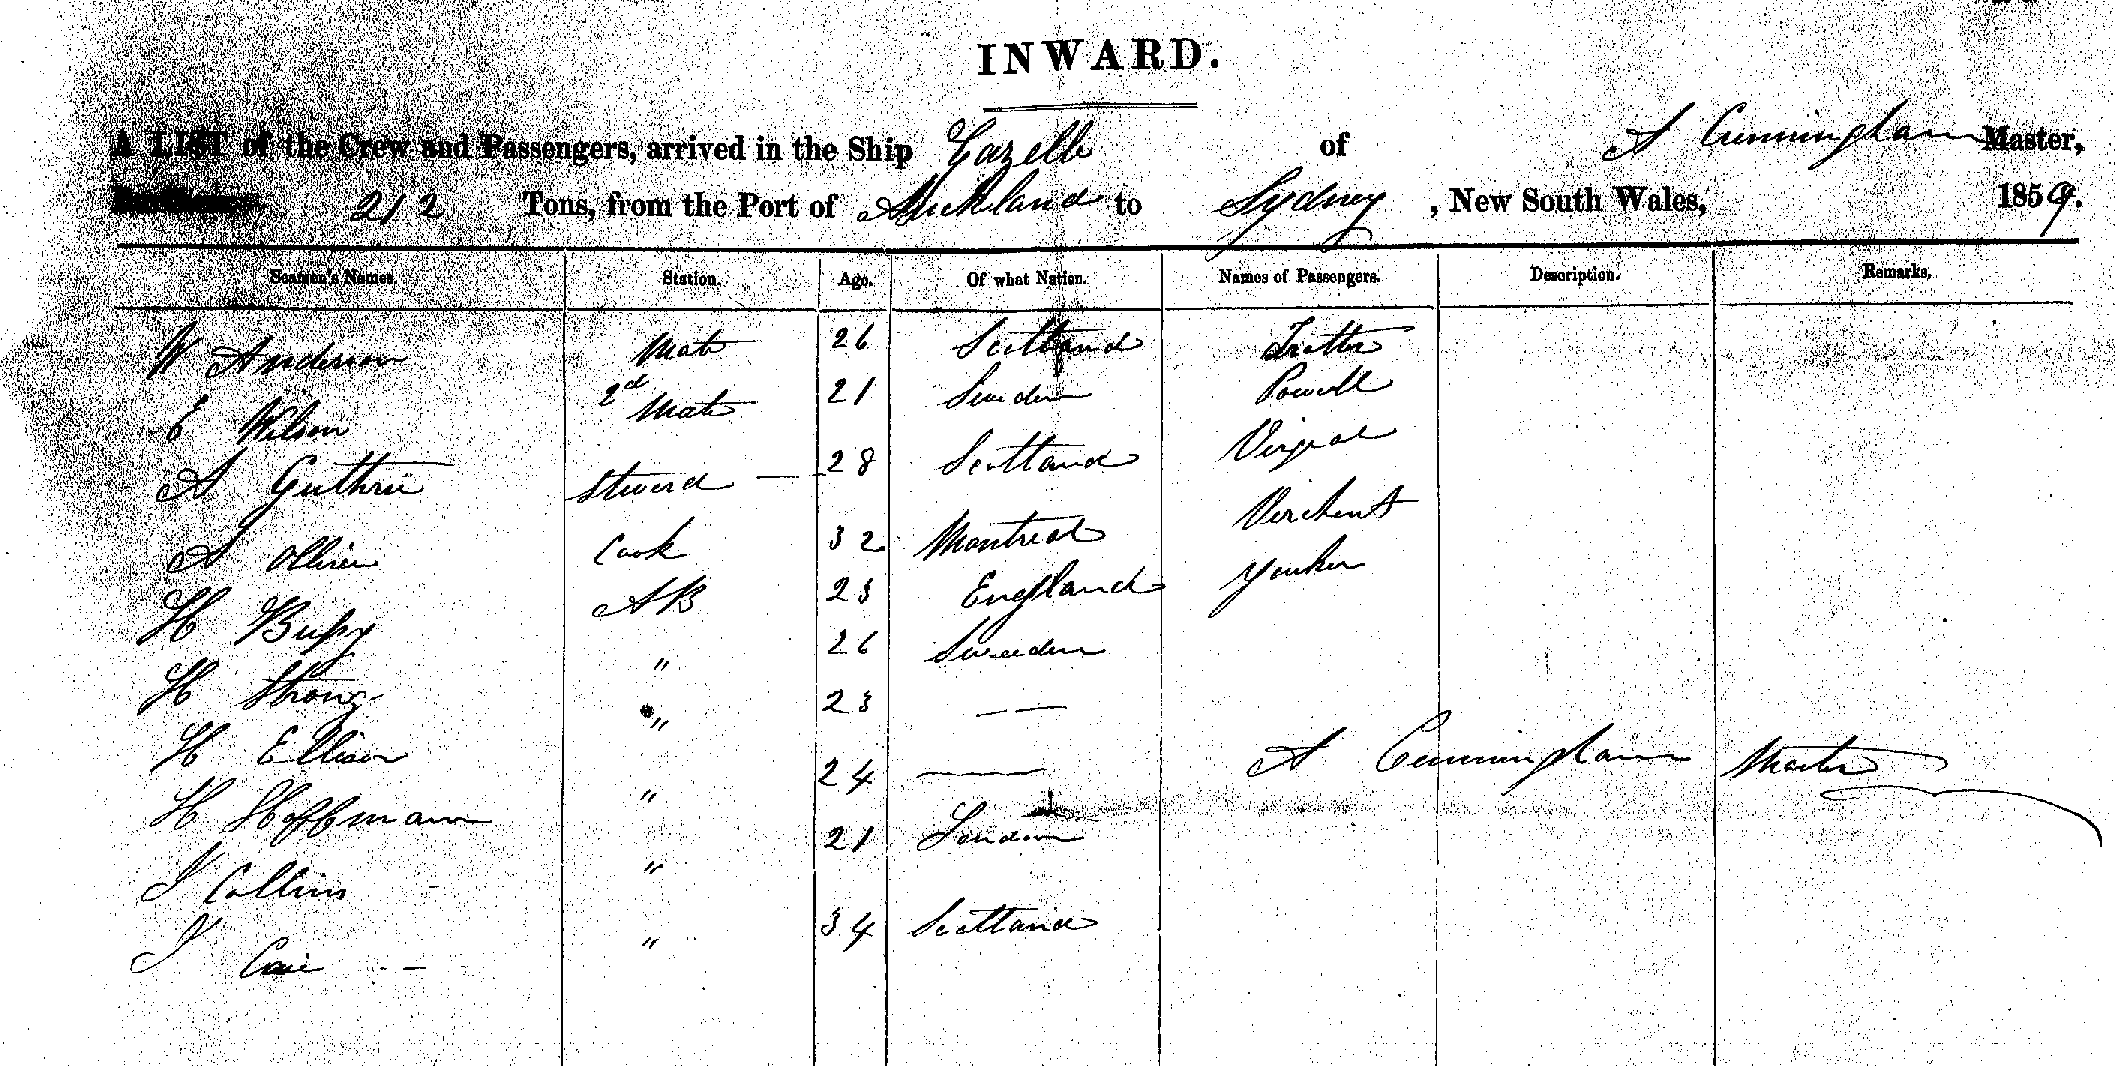 INWARD.
A LIST of the Crew and Passengers, arrived in the Ship Gazelle of A Cunningham Master,
212 Tons, from the Port of Auckland to Sydney, New South Wales, 1859.
Seamen's Names Station. Age. Of what Nation. Names of Passengers. Description. Remarks.
W Anderson Mate 26 Scotland Trotter
E Wilson 2d Mate 21 Sweden Powell
A Guthrie Steward — 28 Scotland
A Cook 32 Montreal
H AB 23 England Yonker
H Strong " 26 Sweden
H Ellison " 23 —
H Hoffmann " 24 — A Cunningham Master
J Collins " 21 London
J " 34 Scotland